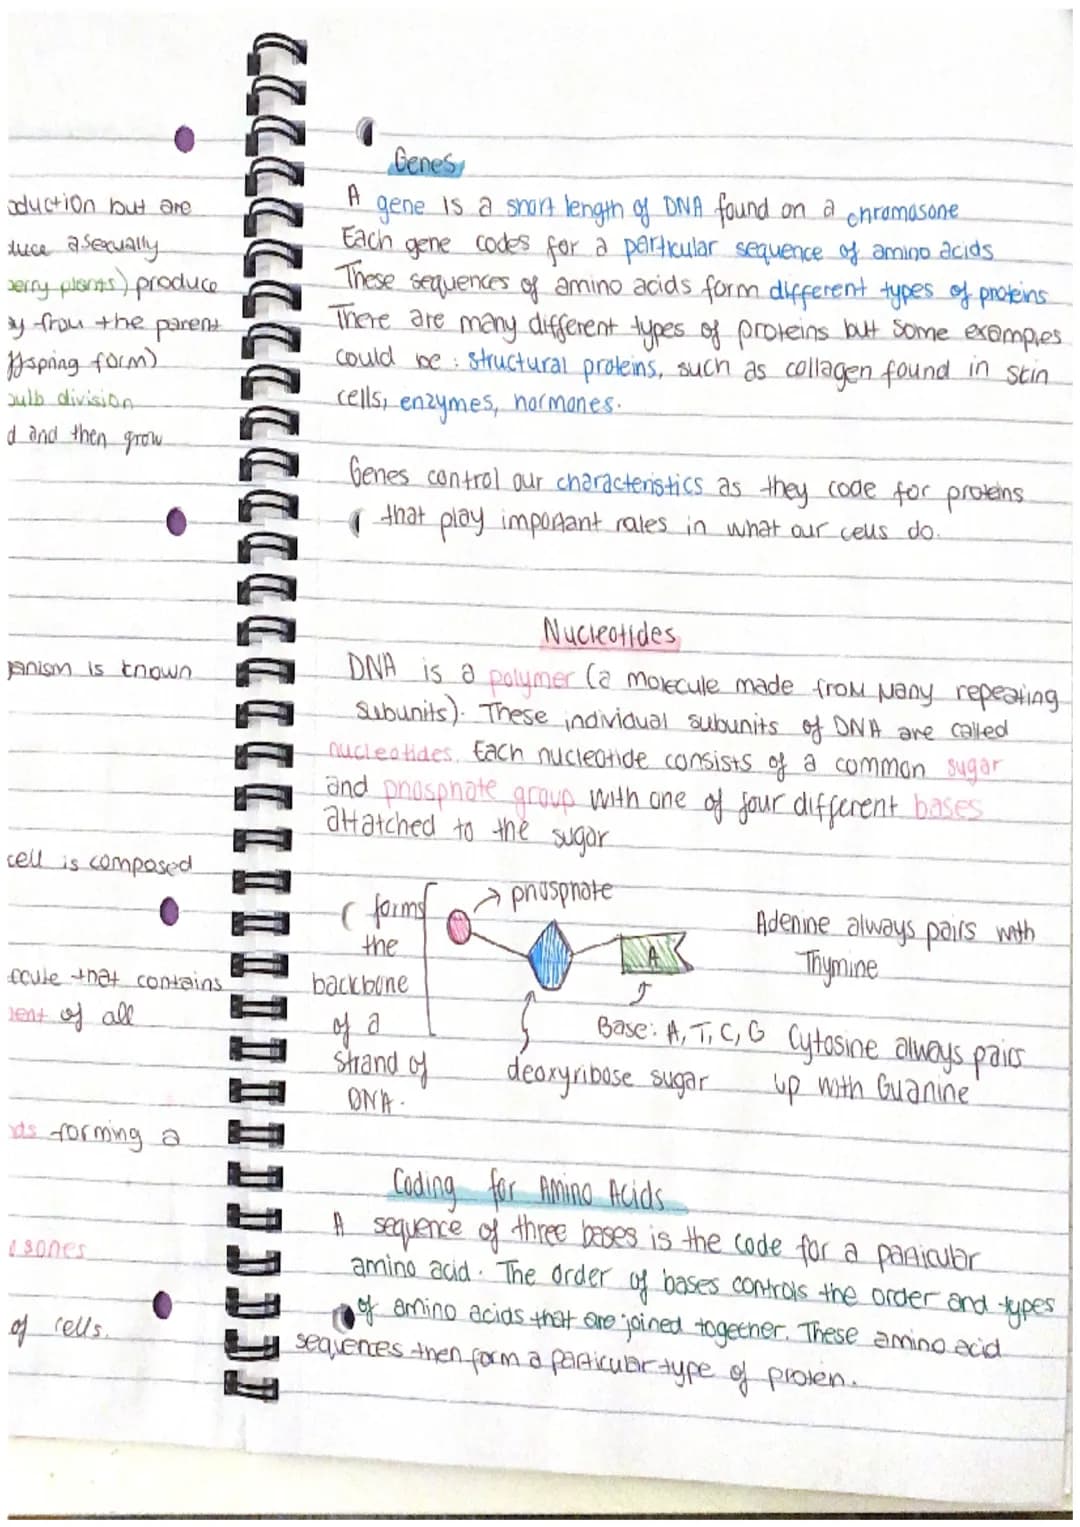 oduction but are
duce asexually
berry plants) produce
y from the parent
ffspring form)
bulb division
d and then grow
anism is known
cell is composed
ecule that contains
ent of all
ds forming a
osones
of cells.
Genes
A gene is a short length of DNA found on a chromosone
Each gene codes for a particular sequence of amino acids
These sequences of amino acids form different types of proteins
There are many different types of proteins but some examples
could be : structural proteins, such as collagen found in skin
cells, enzymes, hormones.
Genes control our characteristics as they code for proteins
that play important roles in what our cells do.
Nucleotides
DNA is a polymer (a molecule made from many repeating
subunits). These individual subunits of DNA are called
nucleotides. Each nucleotide consists of a common sugar
and phosphate group with one of four different bases
attatched to the sugar
( forms
the
backbone
of a
strand of
DNA.
phosphate
A
Base: A, T, C, G
deoxyribose sugar
Adenine always pairs with
Thymine
Cytosine always pairs
up with Guanine
Coding for Amino Acids
A sequence of three bases is the code for a particular
amino acid. The order of bases controls the order and types
of amino acids that are joined together. These amino acid
sequences then form a particular type of protein.